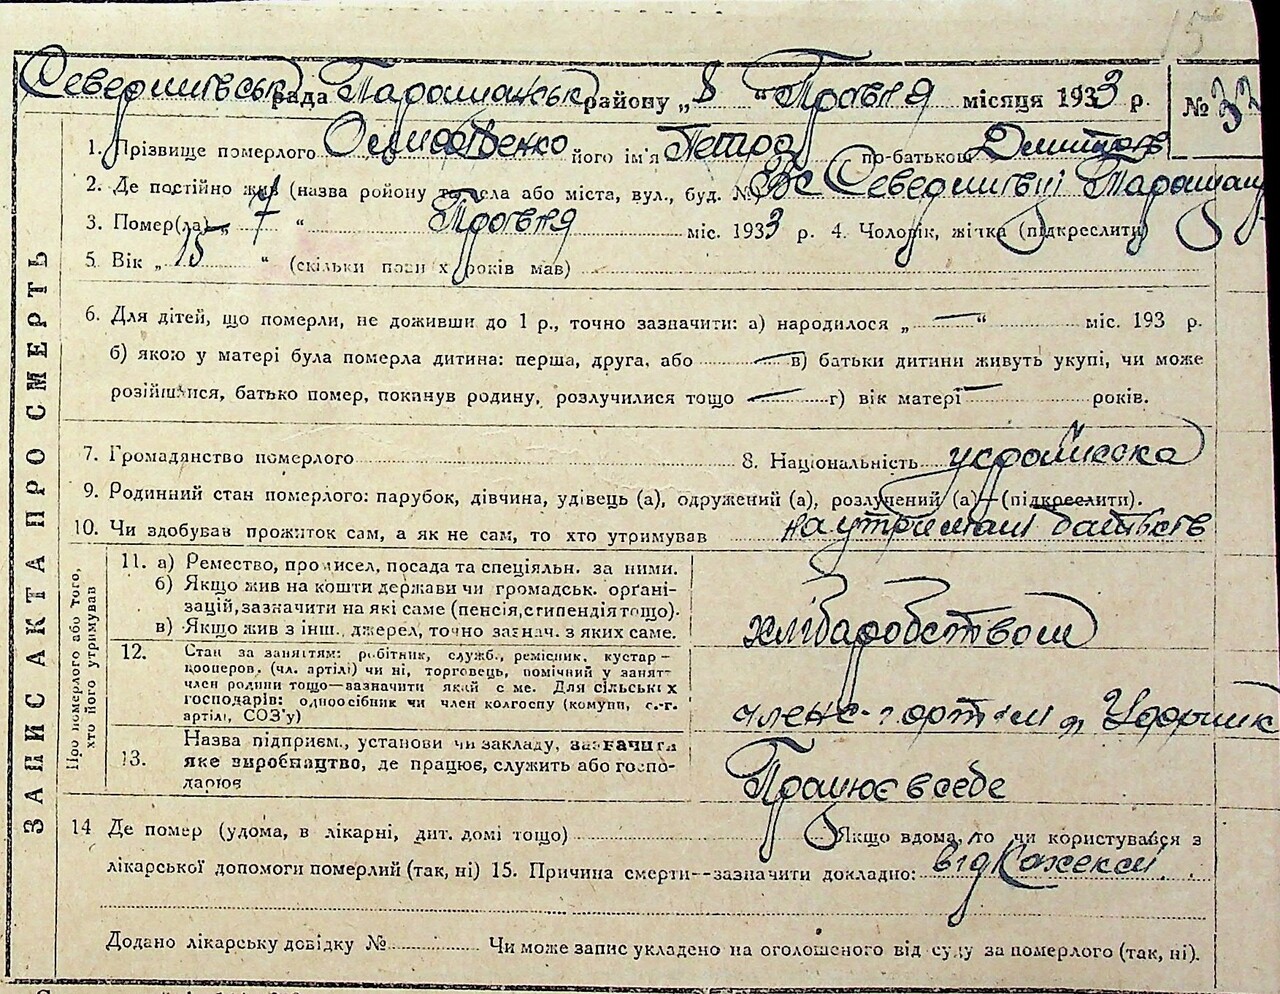 15
Северинівська рада Таращанськ району „ 8 “ Травня місяця 1933 р. № 33
1. Прізвище померлого його ім'я Петро по-батькові Дмитров
2. Де постійно жив (назва ройону та села або міста, вул., буд. № Вс Северинівці Таращан
3. Помер(ла) „ 7 “ Травня міс. 1933 р. 4. Чоловік, жінка (підкреслити)
5. Вік „ 15 “ (скільки повних років мав)
6. Для дітей, що померли, не доживши до 1 р., точно зазначити: а) народилося „ — “ міс. 193 р.
б) якою у матері була померла дитина: перша, друга, або — в) батьки дитини живуть укупі, чи може
розійшлися, батько помер, покинув родину, розлучилися тощо — г) вік матері — років.
7. Громадянство померлого 8. Національність українська
9. Родинний стан померлого: парубок, дівчина, удівець (а), одружений (а), розлучений (а)—(підкреслити).
10. Чи здобував прожиток сам, а як не сам, то хто утримував на утримані батьків
Про померлого або того, хто його утримував
11. а) Ремество, промисел, посада та спеціяльн. за ними.
б) Якщо жив на кошти держави чи громадськ. орґані-
зацій, зазначити на які саме (пенсія, стипендія тощо).
в) Якщо жив з інш. джерел, точно зазнач. з яких саме.
хлібаробством
12. Стан за заняттям: робітник, служб., ремісник, кустар-
кооперов. (чл. артілі) чи ні, торговець, помічний у занят-
член родини тощо—зазначити який саме. Для сільських
господарів: одноосібник чи член колгоспу (комуни, с.-г.
артілі, СОЗ'у)
член с-г артілі Ударник
13. Назва підприєм., установи чи закладу, зазначити
яке виробництво, де працює, служить або госпо-
дарює
Працює в себе
14 Де помер (удома, в лікарні, дит. домі тощо) Якщо вдома, то чи користувався з
лікарської допомоги померлий (так, ні) 15. Причина смерти--зазначити докладно: від Кахексії.
Додано лікарську довідку № Чи може запис укладено на оголошеного від суду за померлого (так, ні).
ЗАПИС АКТА ПРО СМЕРТЬ